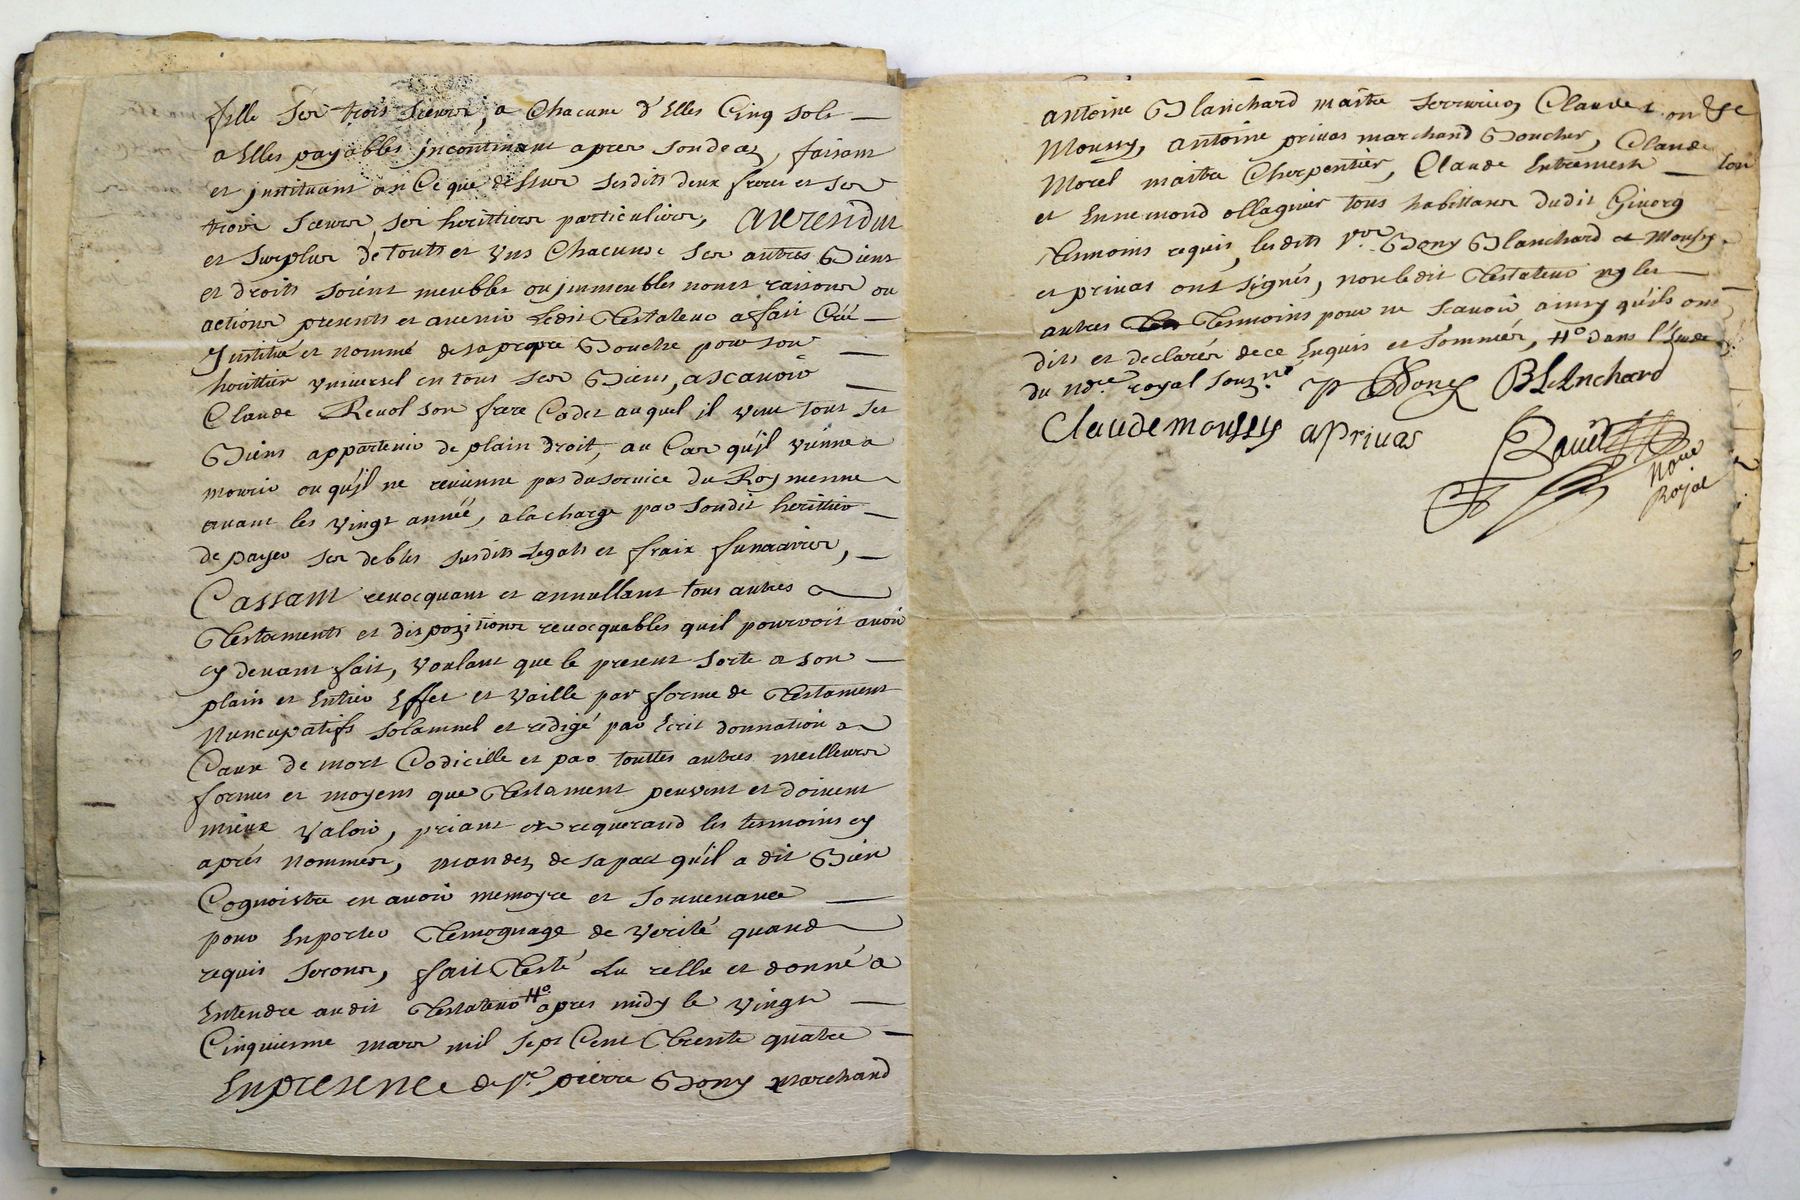 fille ses trois sœurs, a Chacune d'Elles Cinq sols
a Elles payables jncontinant apres son deces, faisant
et jnstituant en Ce que dessus sesdits deux freres et ses
trois sœurs ses herittiers particuliers, Au rendut
et surplus de touts et uns Chacuns ses autres Biens
et droits soient meubles ou jmmeubles noms raisons ou
actions presents et avenir ledit Testateur a fait Créé
Jnstitué et nommé de sa propre Bouche pour son
herittier vniversel en tous ses Biens, ascavoir
Claude Revol son frere Cadet auquel il veut tous ses
Biens appartenir de plain droit, au Cas qu'jl vienne a
mourir ou qu'jl ne revienne pas du service du Roy
avant les vingt année, a la charge par sondit herittier
de payer ses debtes susdits Legats et fraix funeraires,
Cassant revocquant et annullant tous autres
Testaments et dispozitions revocquables quil pourroit avoir
cy devant fait, voulant que le present sorte a son
plain et Entier Effet et vaille par forme de Testament
Nuncupatifs solamnel et redigé par Ecrit donnation a
Cause de mort Codicille et par touttes autres meilleures
formes et moyens que Testament peuvent et doivent
mieux valoir, priant et requerand les tesmoins cy
aprés nommés, mandez de sa part qu'il a dit Bien
Cognoistre en avoir memoyre et souvenance
pour Enporter Temognage de verité quand
requis seronts, fait Testé Lu rellu et donné a
Entendre audit Testateur Ho apres midy le vingt
Cinquiesme mars mil sept Cent Trente quatre
En presence de sr. pierre Bony marchand
antoine Blanchard maitre serrurier, Claude
Moussy, antoine privas marchand Boucher, Claude
Morel maitre Cherpentier, Claude Entremesh
et Ennemond ollagnier tous habittans dudit Givors
tesmoins requis, lesdits srs Bony Blanchard et Moussy
et privas ont signés, non ledit Testateur ny les
autres Tesmoins pour ne scavoir ainsy qu'ils ont
dits et declarés de ce Enquis et sommés, Ho dans l'Etude
du ndre royal souzne P Bony BLAnchard
Claude moussy a Privas
Royal